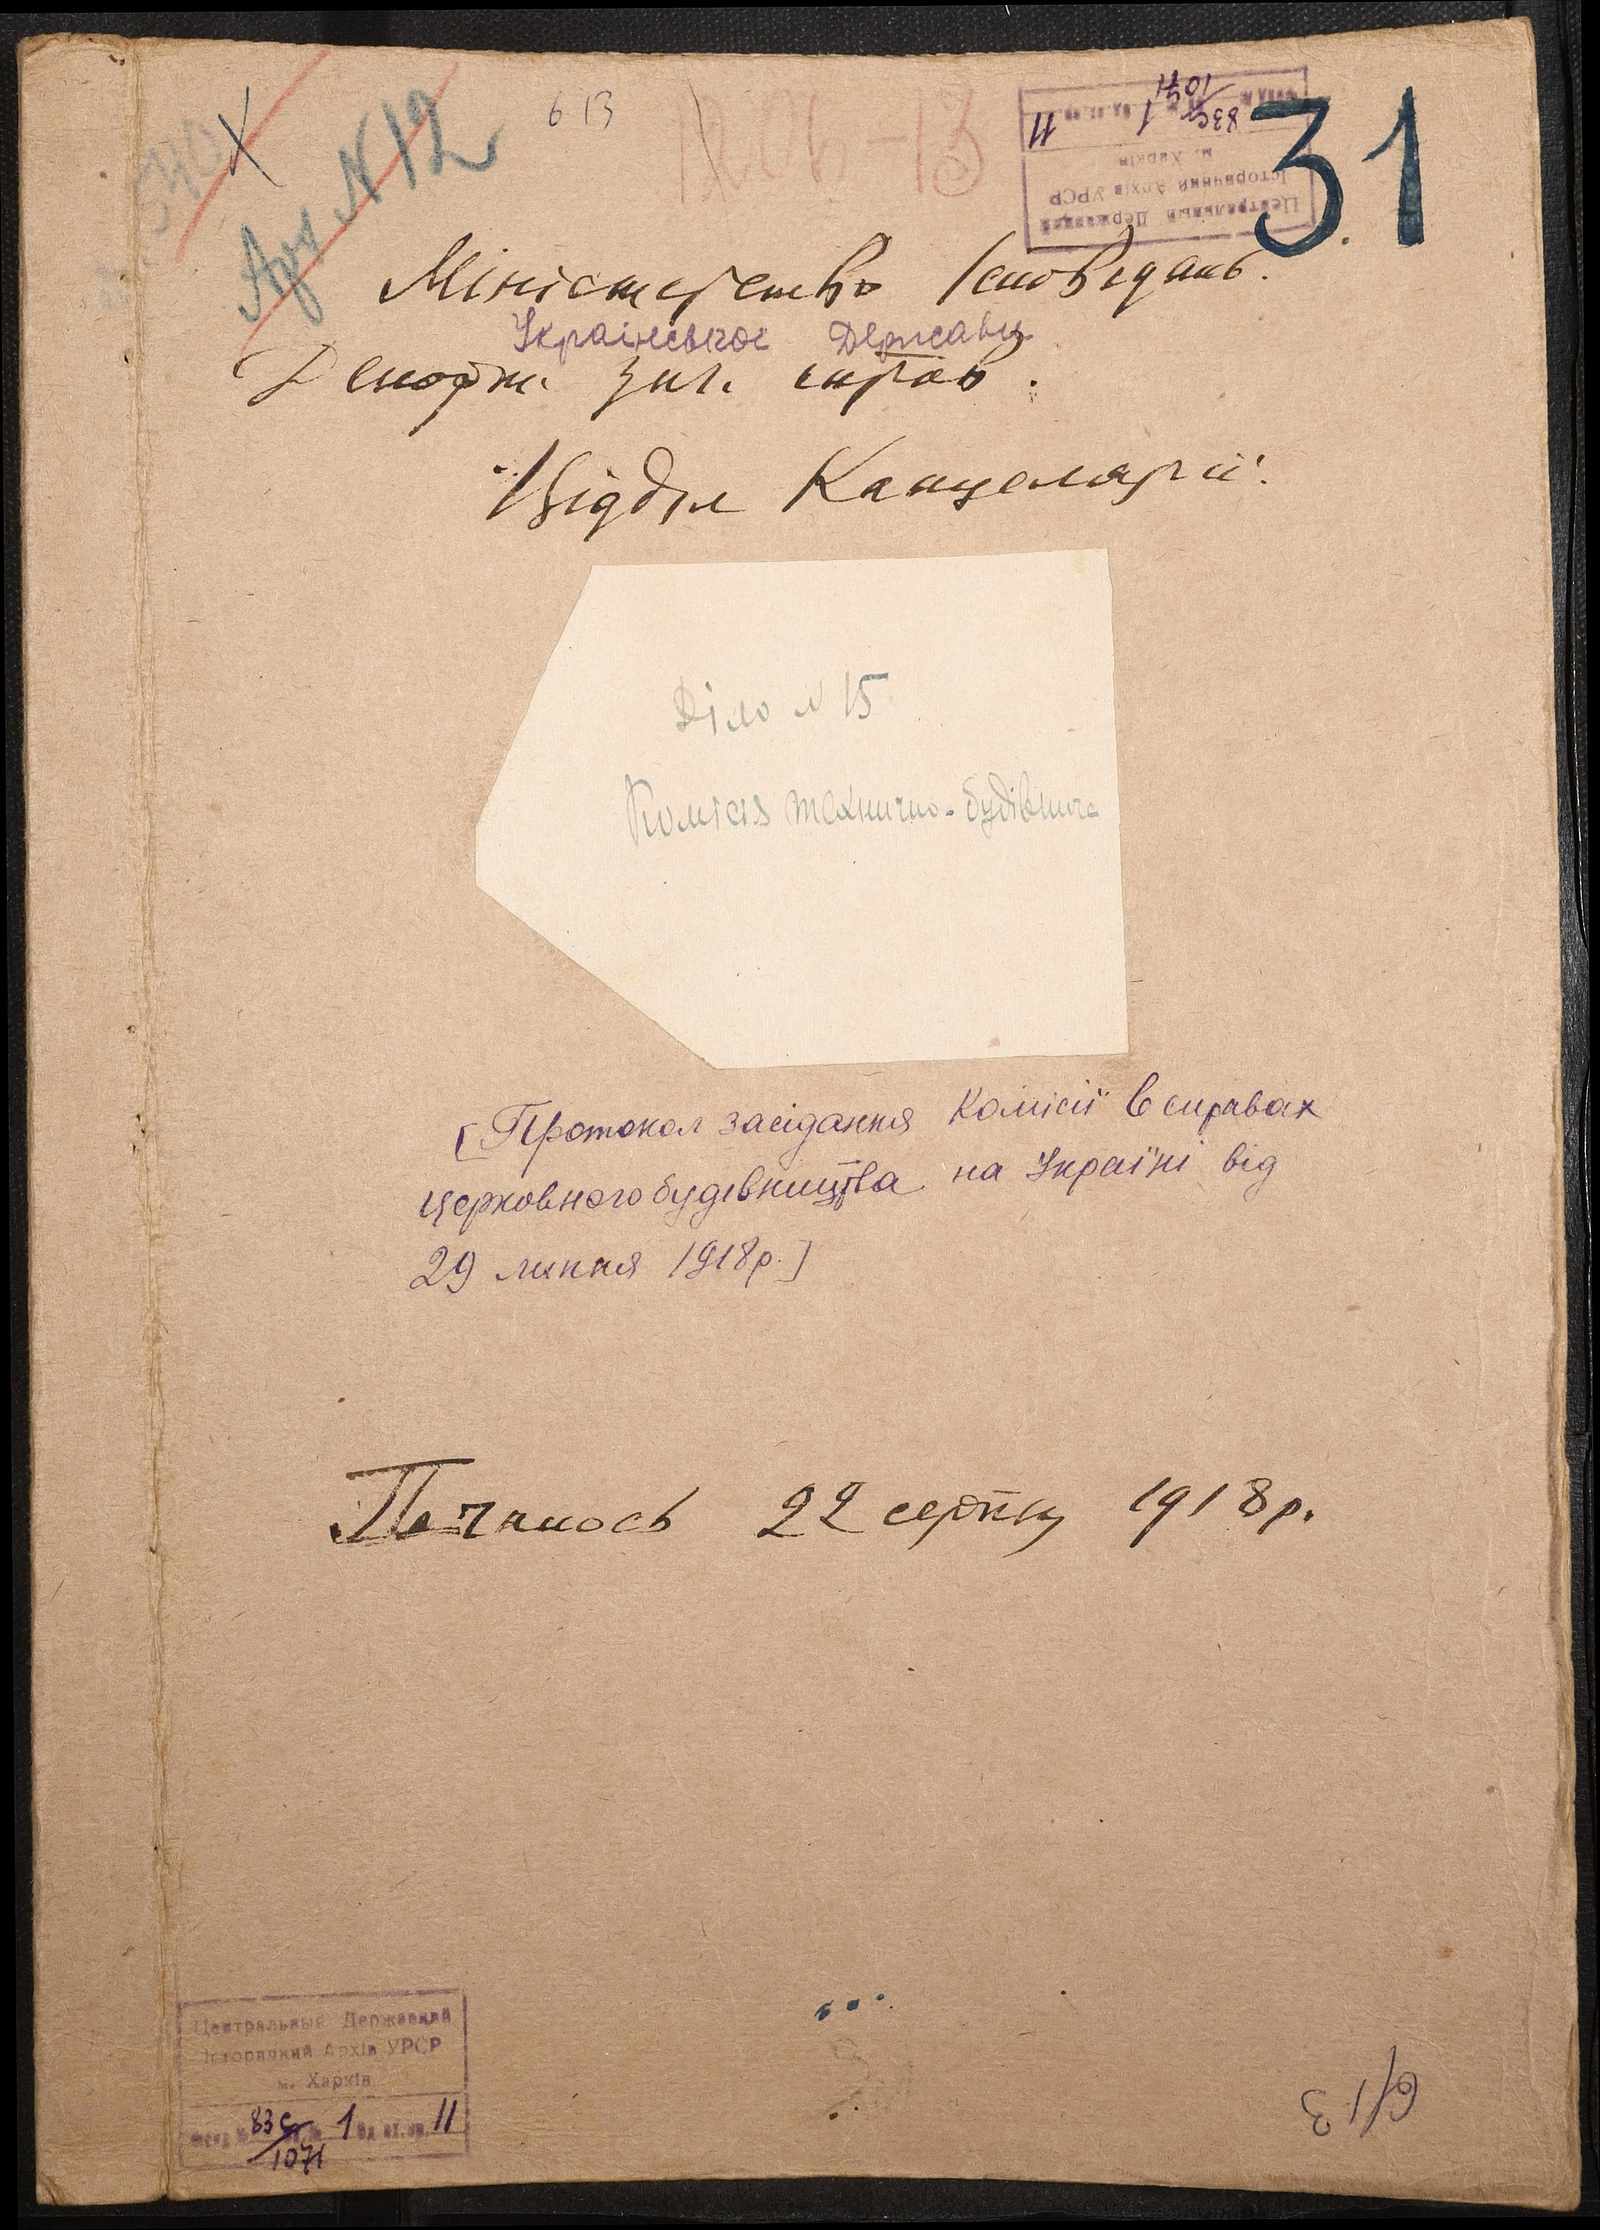 Арх N 12
6 13
31
Центральний Державний
Історичний Архів УРСР
м. Харків
Фонд № 83с 1 Од.зб.№ 11
1071
Міністерство Ісповідань.
Української Держави
Департ. заг. справ.
Відділ Канцелярії.
Діло N 15
Комісія технично-будівнича
[Протокол засідання Комісії в справах
церковного будівництва на Україні від
29 липня 1918р.]
Почалось 22 серпня 1918р.
Центральний Державний
Історичний Архів УРСР
м. Харків
Фонд № 83с оп.№ 1 Од.зб.№ 11
1071
6/13